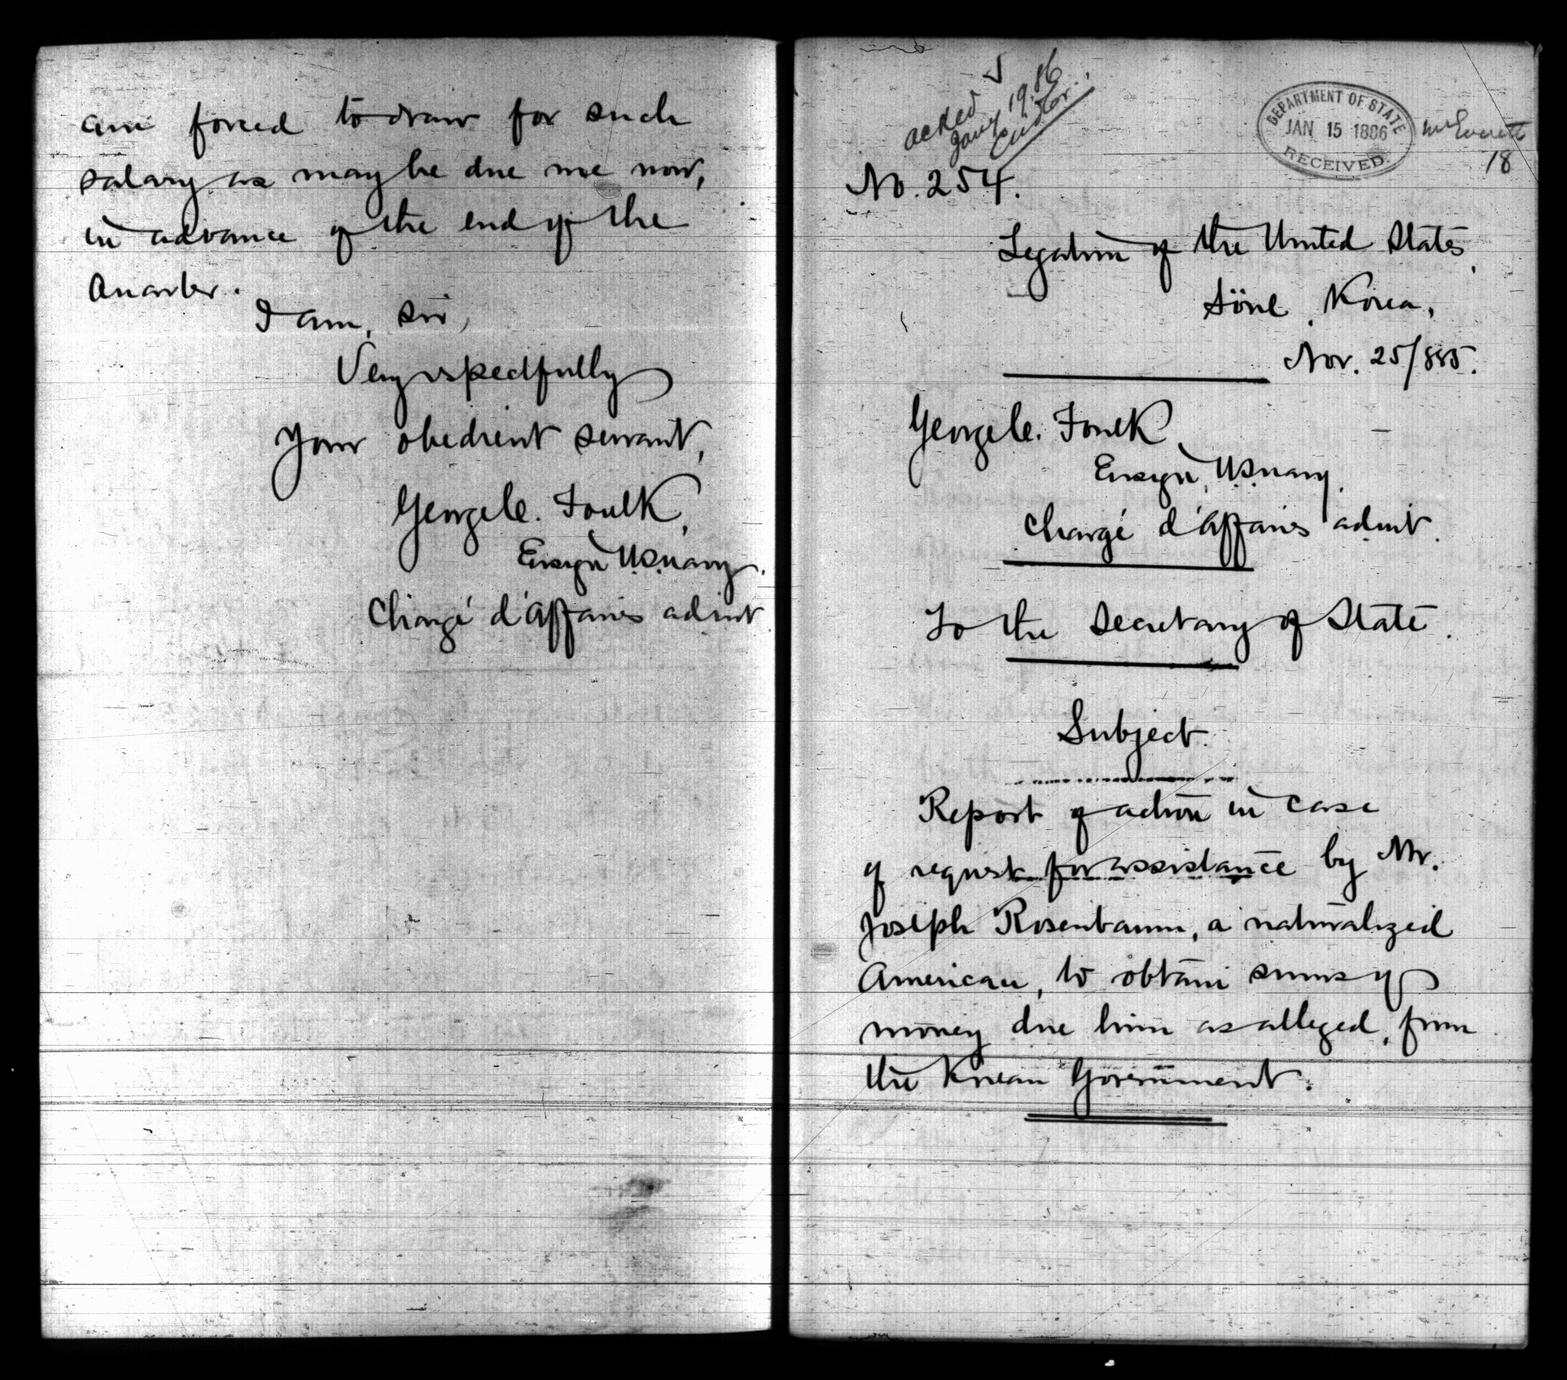 am forced to draw for such
salary as may be due me now,
in advance of the end of the
Quarter.
I am, sir,
Very respectfully
Your obedient servant,
George C. Foulk,
Ensign U.S. Navy.
Chargé d'Affaires ad int
acked
Jany 19. 86
No. 254.
DEPARTMENT OF STATE
JAN 15 1886
RECEIVED.
Mr Everett
18
Legation of the United States,
Söul, Korea,
Nov. 25/885.
George C. Foulk,
Ensign, U.S. Navy,
Chargé d'Affaires ad int.
To the Secretary of State.
Subject.
Report of action in case
of request for assistance by Mr.
Joseph Rosenbaum, a naturalized
American, to obtain sums of
money due him as alleged, from
the Korean Government.